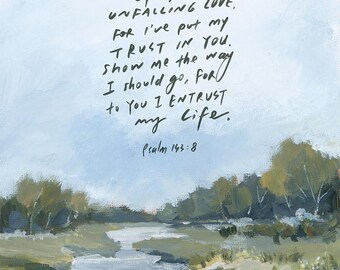 UNFAILING LOVE,
FOR I'VE PUT MY
TRUST IN YOU.
SHOW ME THE WAY
I SHOULD GO, FOR
to YOU I ENTRUST
my life.
Psalm 143:8